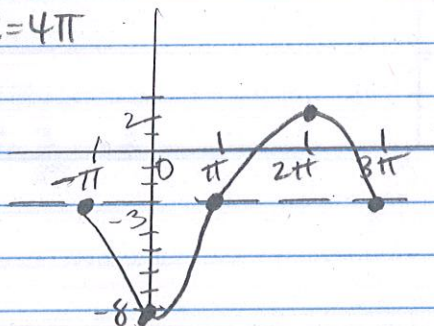 =4π
2
-π 0 π 2π 3π
-3
-8